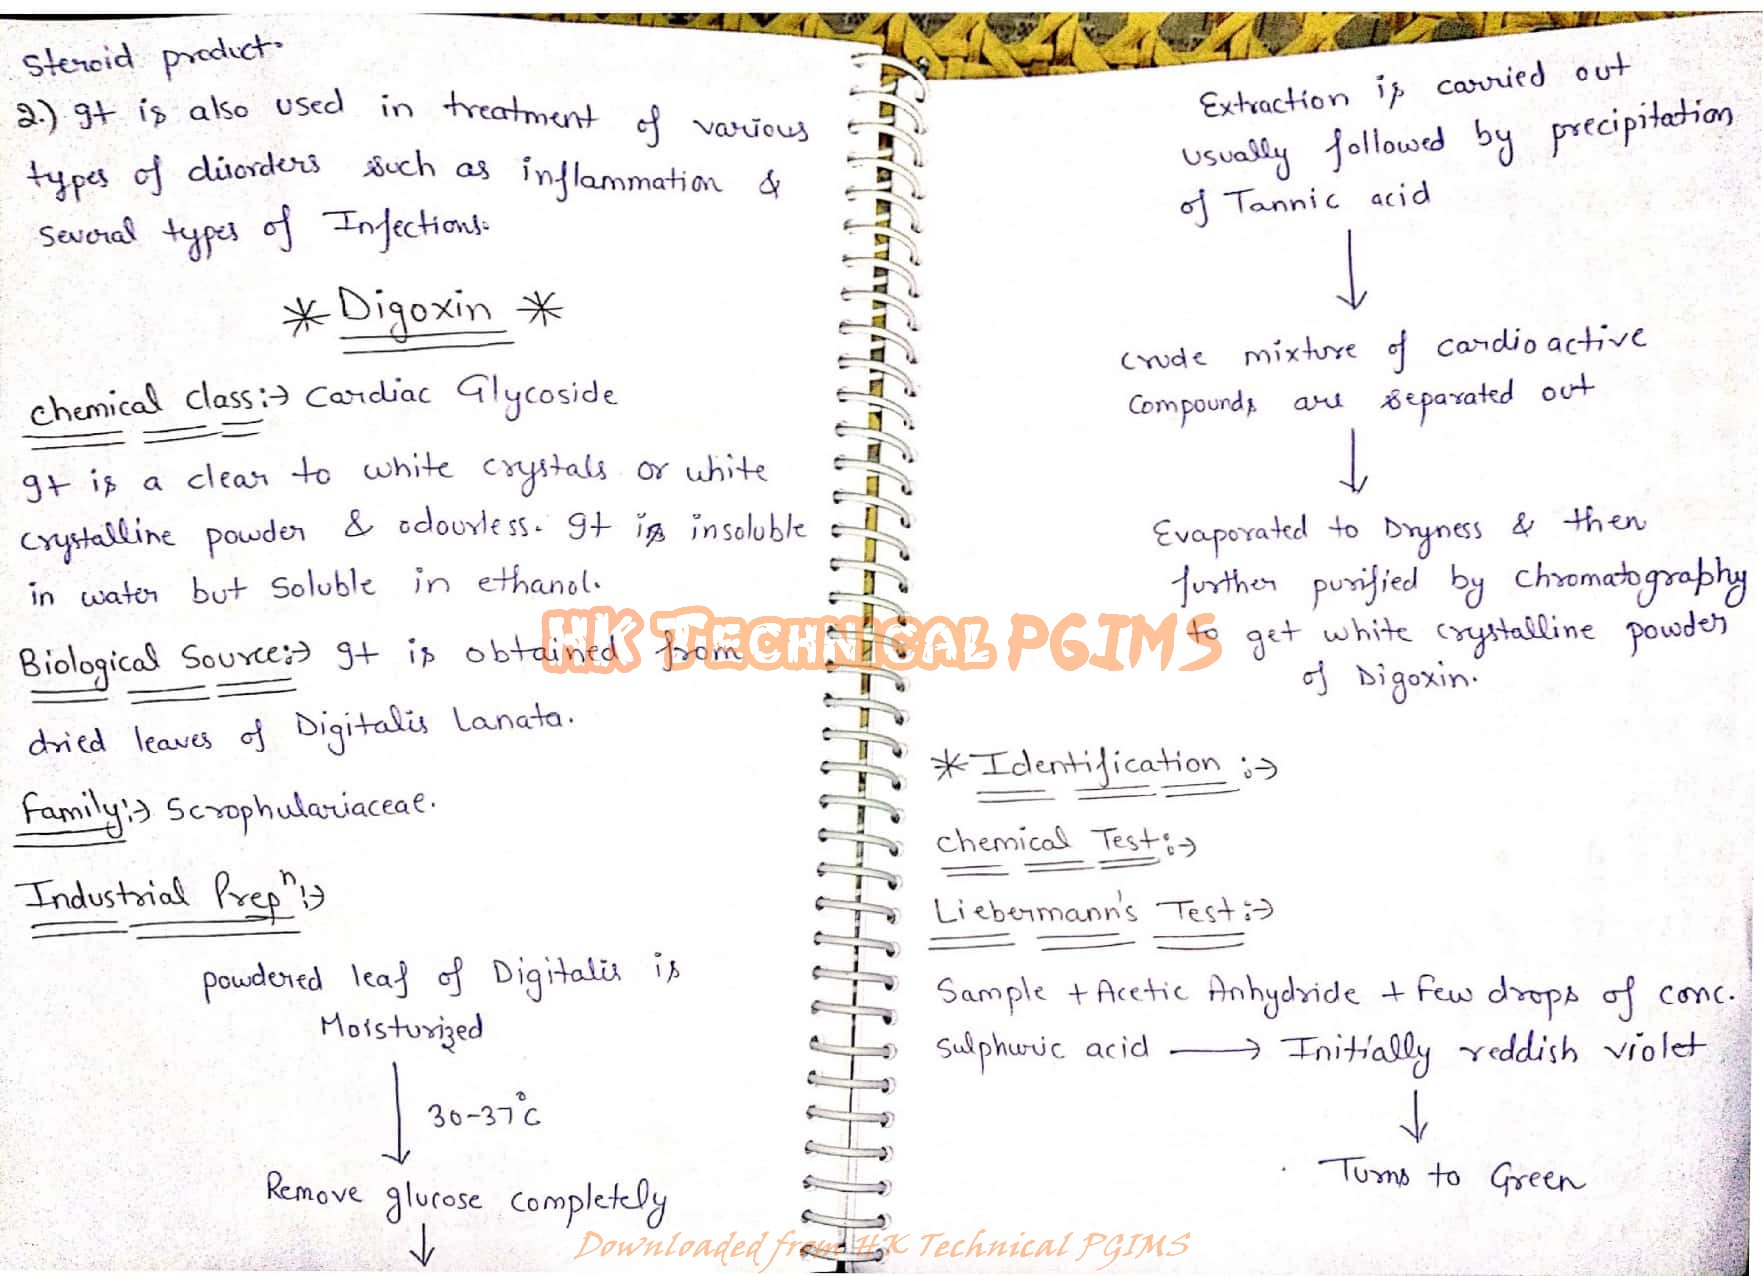 Steroid product.
2.) It is also used in treatment of various
types of disorders such as inflammation &
several types of Infections.
* Digoxin *
Chemical Class:→ Cardiac Glycoside
It is a clear to white crystals or white
crystalline powder & odourless. It is insoluble
in water but soluble in ethanol.
Biological Source:→ It is obtained from
dried leaves of Digitalis Lanata.
Family:→ Scrophulariaceae.
Industrial Prepⁿ:→
powdered leaf of Digitalis is
Moisturized
↓ 30-37°C
Remove glucose completely
↓
Extraction is carried out
usually followed by precipitation
of Tannic acid
↓
Crude mixture of cardioactive
Compounds are separated out
↓
Evaporated to Dryness & then
further purified by Chromatography
to get white crystalline powder
of Digoxin.
* Identification :→
Chemical Test:→
Liebermann's Test:→
Sample + Acetic Anhydride + Few drops of conc.
Sulphuric acid → Initially reddish violet
↓
Turns to Green
HK Technical PGIMS
Downloaded from HK Technical PGIMS